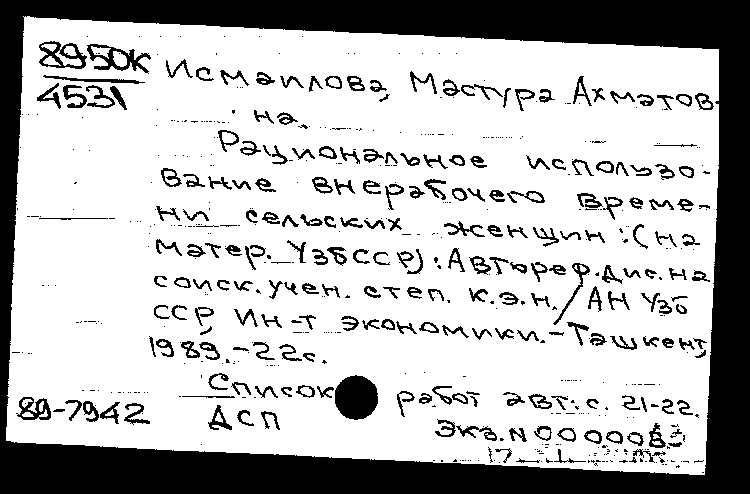 8950К Исмаилова, Мастура Ахматов-
4531 на.
Рациональное использо-
вание внерабочего време-
ни сельских женщин : (на
матер. УзбССР) : Автореф. дис. на
соиск. учен. степ. к.э.н. / АН Узб
ССР, Ин-т экономики. – Ташкент,
1989. – 22с.
Список работ авт.: с. 21-22.
89-7942 ДСП
Экз. N 0000083